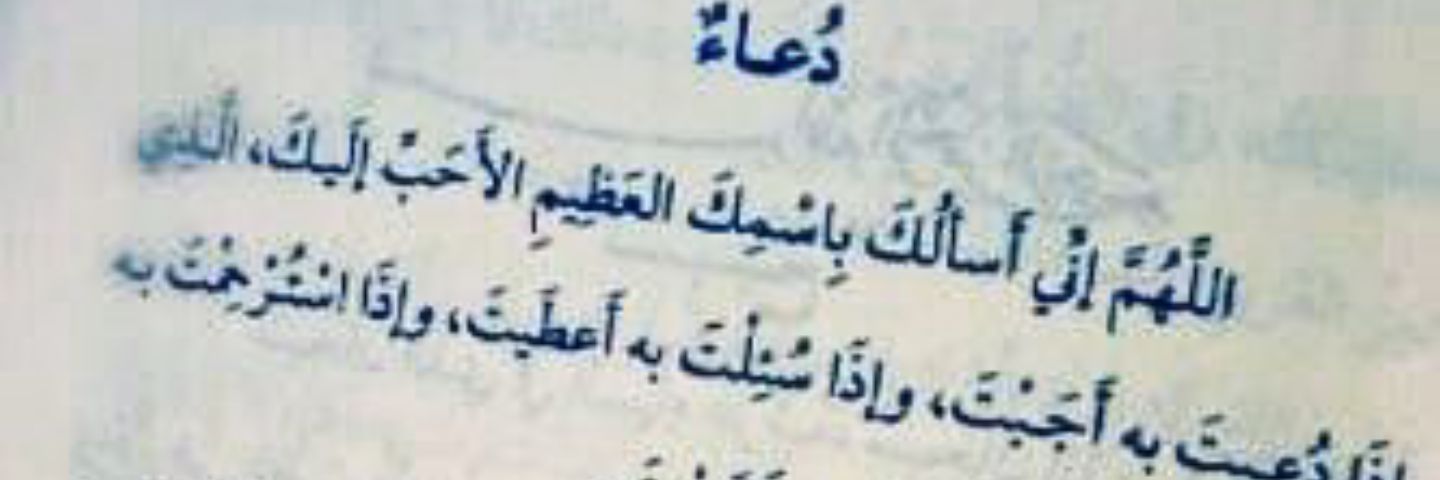 دُعاءٌ
اللَّهُمَّ إنِّي أَسألُكَ بِاسْمِكَ العَظِيمِ الأَحَبِّ إلَيكَ، الَّذي
إذَا دُعِيتَ به أَجَبْتَ، وإذَا سُئِلْتَ به أَعطَيتَ، وإذَا اسْتُرْحِمْتَ به